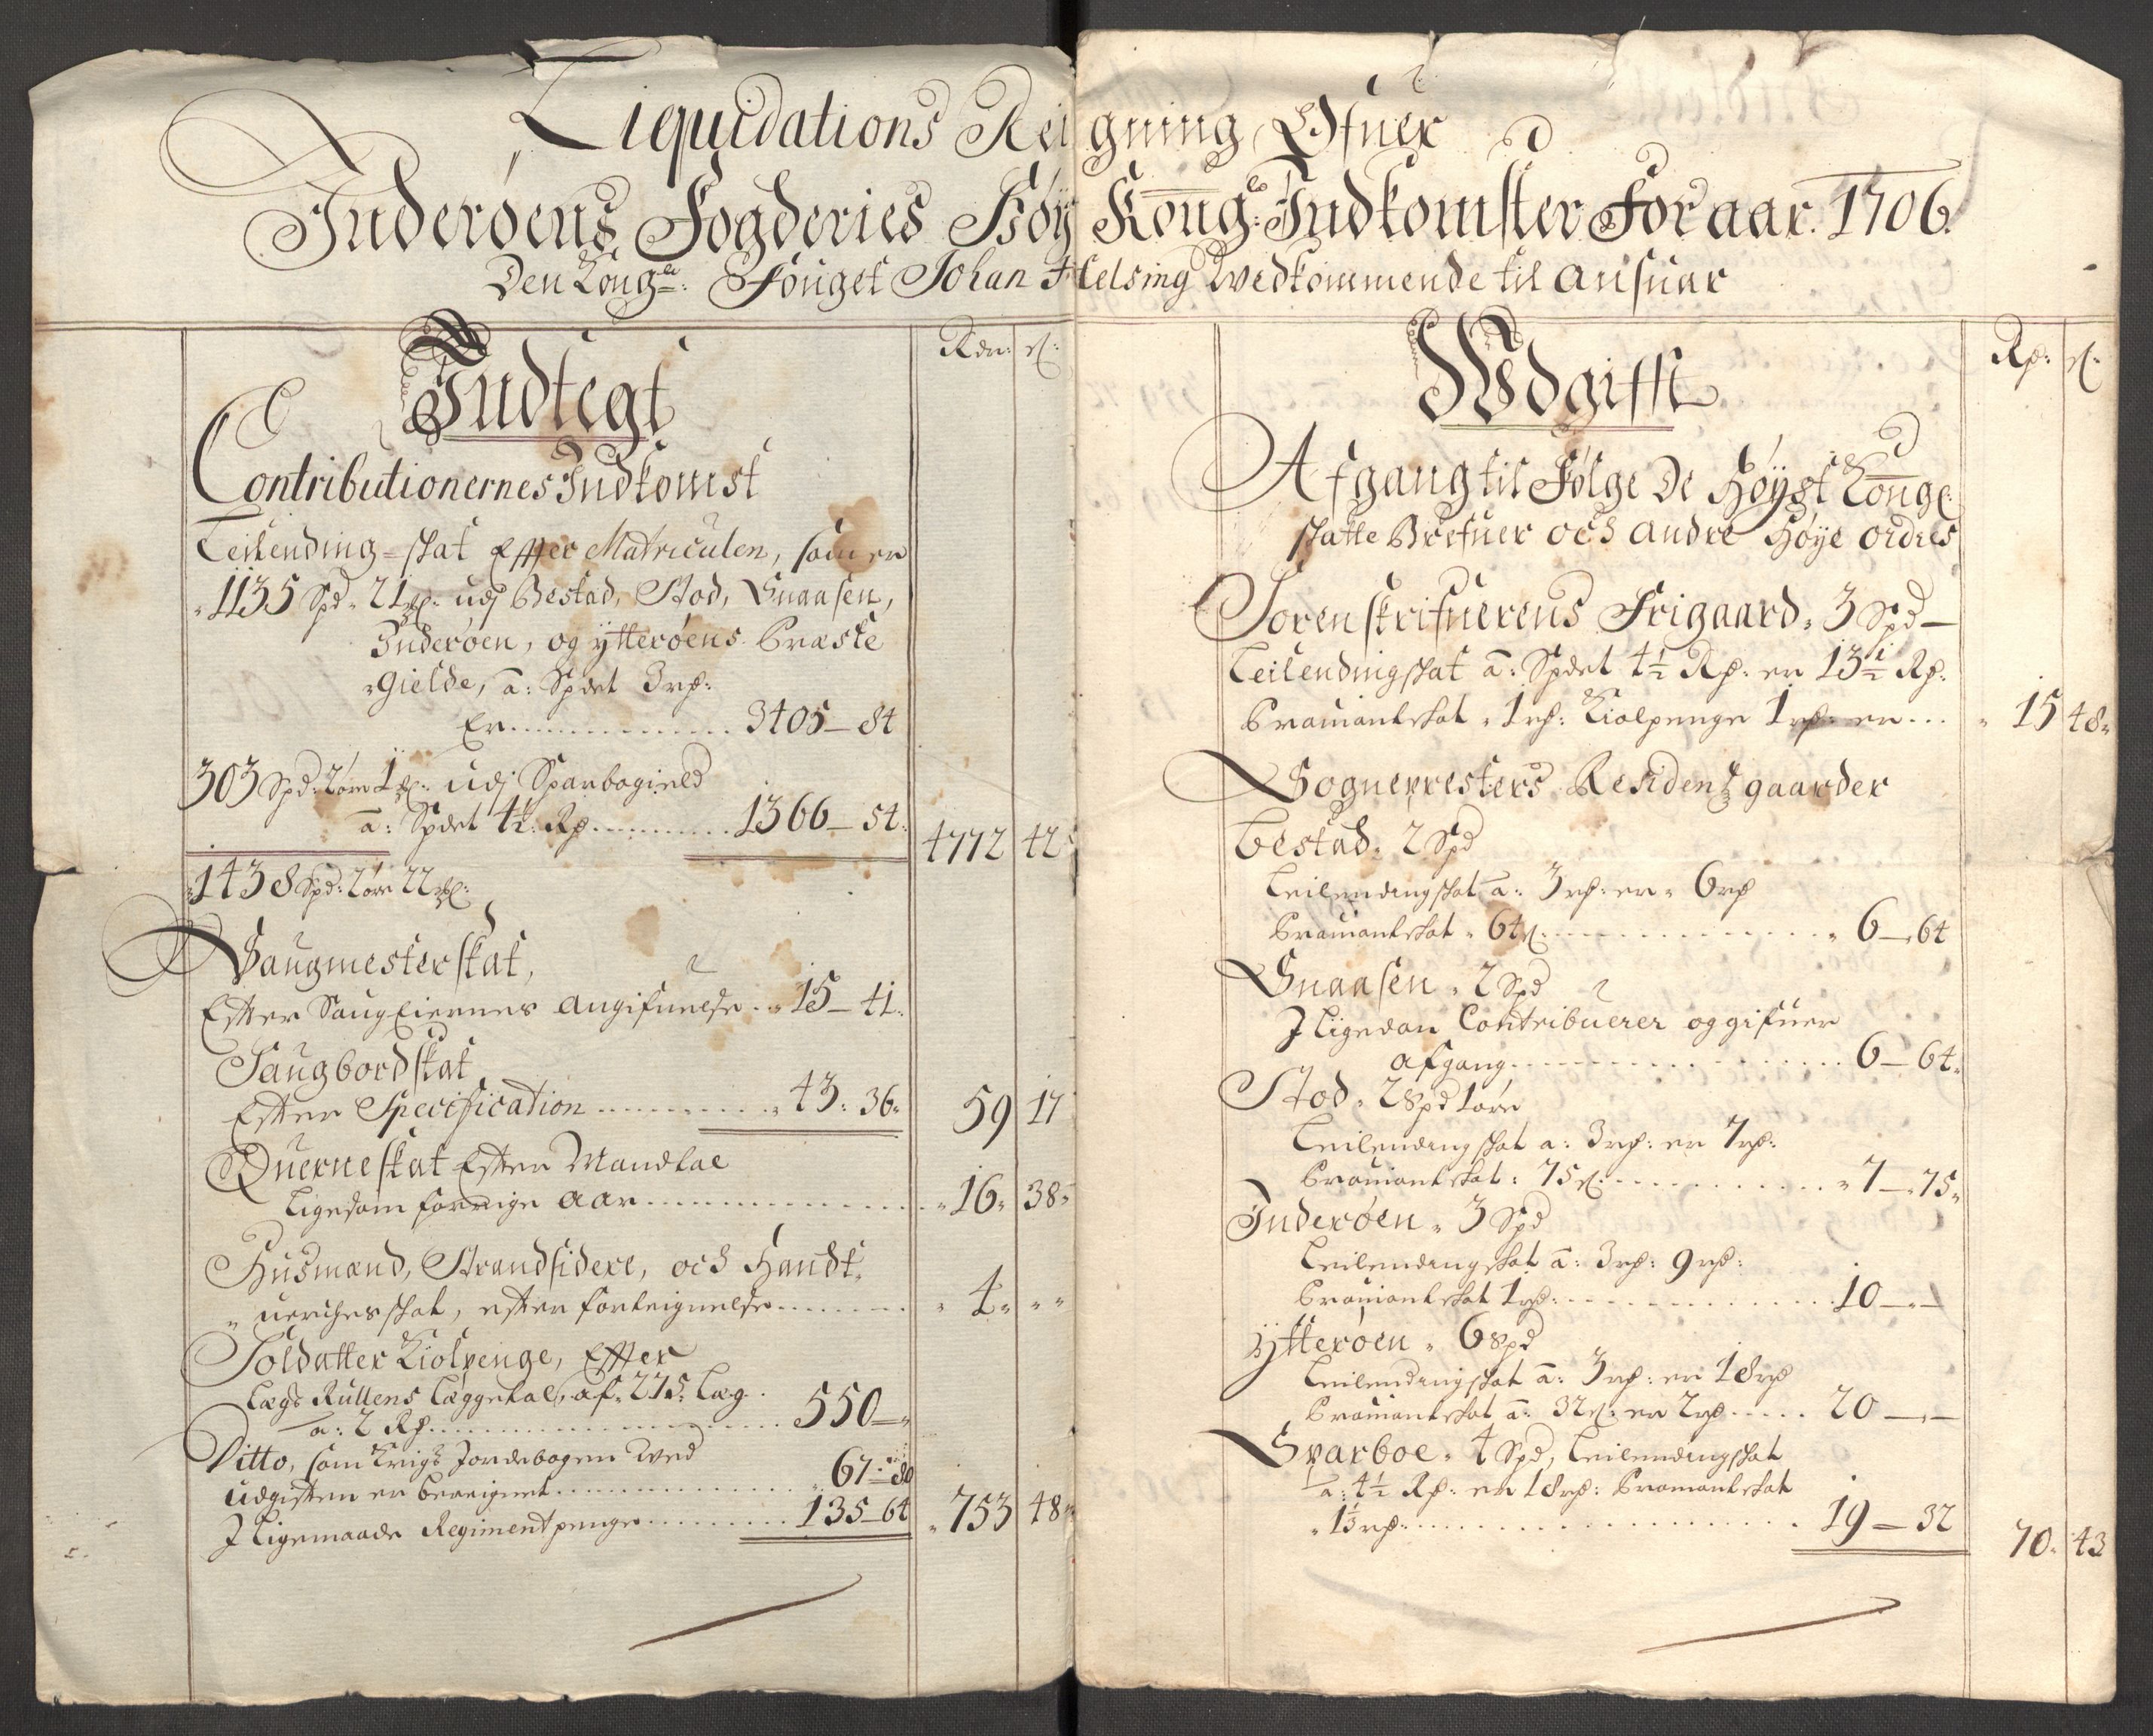 Liqvidations Reigning Ofuer
Inderøens Fogderies Høy Kong: Indkomster For aar 1706
Den Kongle: Fouget Johan Helsing Wedkommende til ansuar
Rdr: s:
Indtegt
Contributionernes Indkomst
Leilending-skat Effter Matriculen, som er
1135 Spd 21 mkl: udj Bestad, Stod, Snaasen,
Inderøen, og ytterøens Præste
gielde, a: Spdet 3 rd:
Er 3405-84
303 Spd: 2 øre 1 mkl: udj Sparbogield
a: Spdet 4½ Rd 1366-54
4772 42
1438 Spd: 2 øre 22 mkl:
Saugmesterskat,
Efter Saugeiernes angifuelse 15-41
Saugbordskat
Efter Specification 43: 36
59 17
Querneskat Efter Mandtal
ligesom forrige aar 16 38
Husmænd, Strandsidere, och Handt
uerchesskat, efter forteignelse 4 " "
Soldatter Kiolpenge, Effter
Lægs Rullens læggetal, af 275 læg
a: 2 Rd 550-"
Ditto, som Krigs Jordebogen wed
udgiften er beregnet 67-80
I ligemaade Regimentpenge 135-64
753 48
Rd: s:
Wdgifft
Afgang til Følge De Høyst Kongl:
skatte Brefuer och andre Høye ordres
Sorenskrifuerens Frigaard 3 Spd
Leilendingskat a: Spdet 4½ Rd: er 13½ Rd:
Prouiantskat 1 rd: Kiolpenge 1 rd: er 15 48
Sognepresters Residentzgaarder
Bestad 2 Spd
Leilendingskat a: 3 rd: er 6 rd
Prouiantskat 64 s: 6-64
Snaasen 2 Spd
I ligedan Contribuerer og gifuer
afgang 6-64
Stod 2 Spd 1 øre
Leilendingskat a: 3 rd: er 7 rd:
Prouiantskat: 75 s: 7-75
Inderøen 3 Spd
Leilendingskat a: 3 rd: 9 rd:
Prouiantskat 1 rd: 10-"-
Ytterøen 6 Spd
Leilendingskat a: 3 rd: er 18 rd
Prouiantskat a: 32 s: er 2 rd 20-"-
Sparboe 4 Spd, Leilendingskat
a: 4½ Rd: er 18 rd: Prouiantskat
1⅓ rd: 19-32
70 43